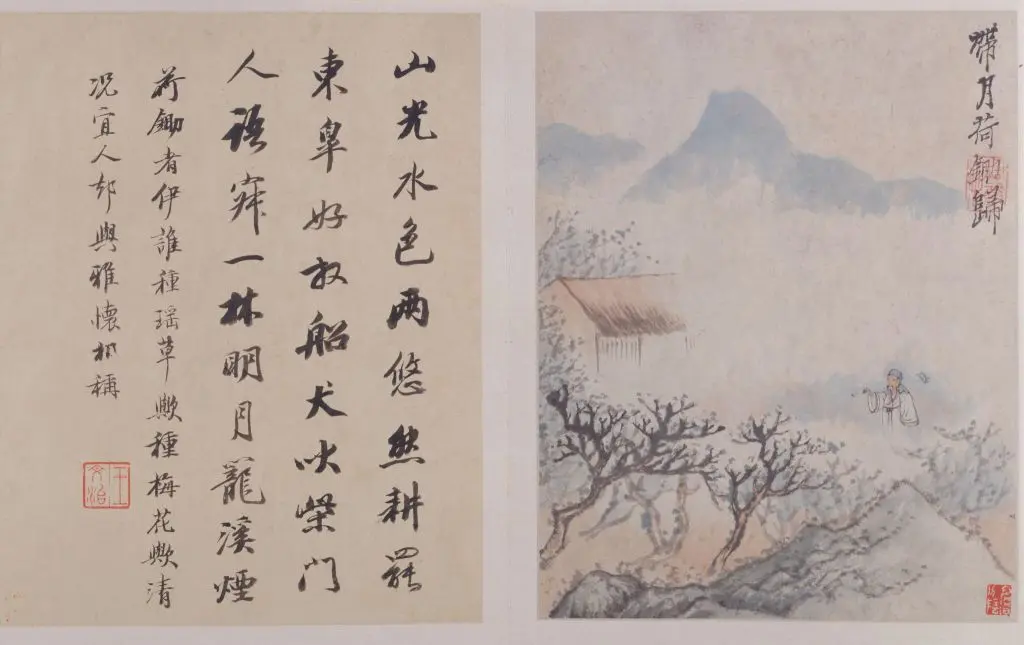 帶月荷鋤歸
山光水色两悠然耕罷
東臯好放船犬吠柴門
人語寂一林明月籠溪煙
荷鋤者伊誰種瑶草歟種梅花歟清
况宜人却與雅懷相稱
王文治